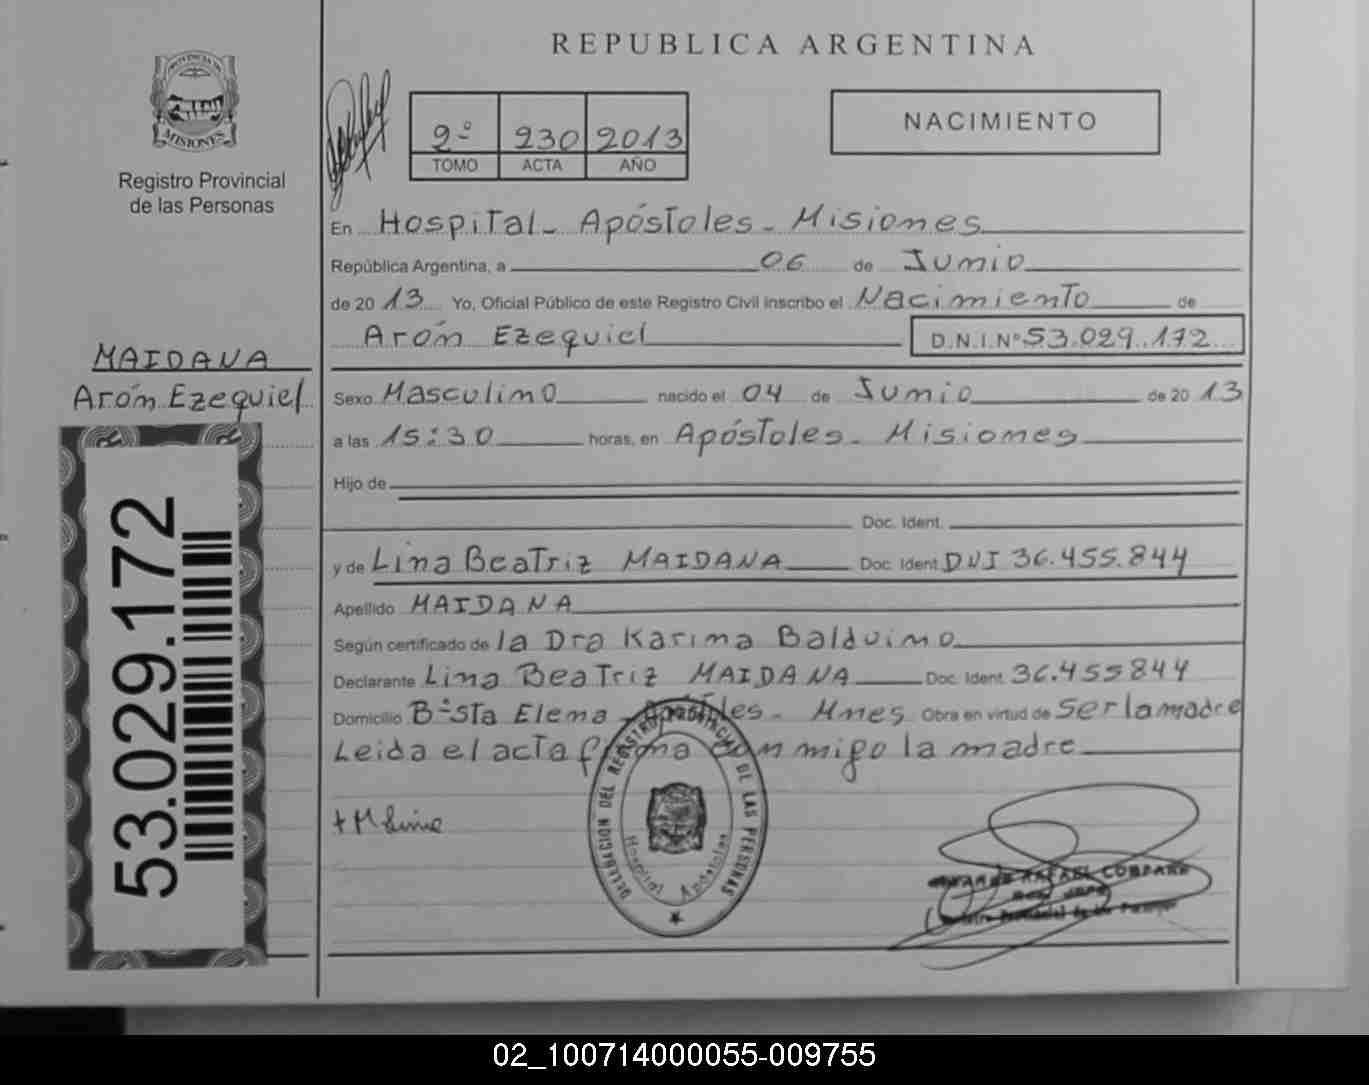 REPUBLICA ARGENTINA
PROVINCIA DE
MISIONES
Registro Provincial
de las Personas
2º 230 2013
TOMO ACTA AÑO
NACIMIENTO
En Hospital - Apóstoles - Misiones
República Argentina, a 06 de Junio
de 20 13 Yo, Oficial Público de este Registro Civil inscribo el Nacimiento de
Arón Ezequiel D.N.I.Nº 53.029.172
MAIDANA
Arón Ezequiel
Sexo Masculino nacido el 04 de Junio de 20 13
a las 15:30 horas, en Apóstoles - Misiones
Hijo de
Doc. Ident.
y de Lina Beatriz MAIDANA Doc. Ident. DNI 36.455.844
Apellido MAIDANA
Según certificado de la Dra Karina Balduino
Declarante Lina Beatriz MAIDANA Doc. Ident. 36.455844
Domicilio Bº Sta Elena - Apóstoles - Mnes Obra en virtud de Ser la madre
Leida el acta firma conmigo la madre
53.029.172
DELEGACION DEL REGISTRO PROVINCIAL DE LAS PERSONAS
Hospital Apóstoles
RAFAEL
02_100714000055-009755